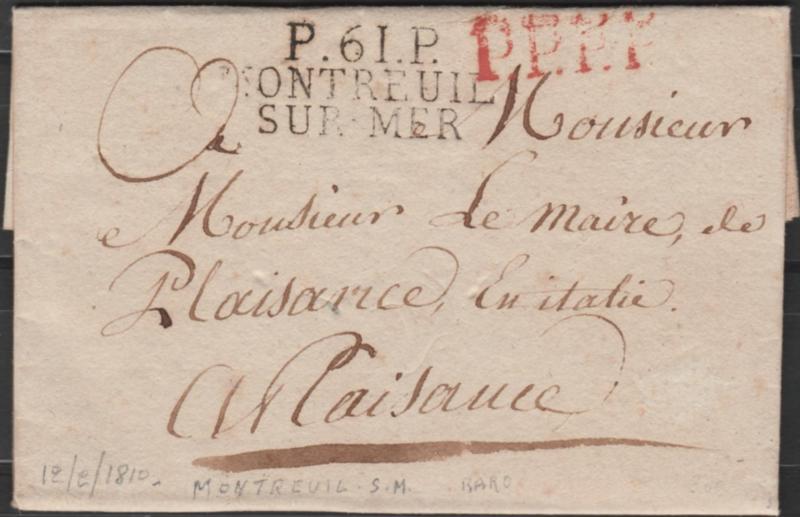 P.61.P. P.P.P.P
MONTREUIL
SUR-MER
A Monsieur
Monsieur Le maire, de
Plaisance, En italie.
A Plaisance
12/2/1810-
MONTREUIL-S.M. RARO